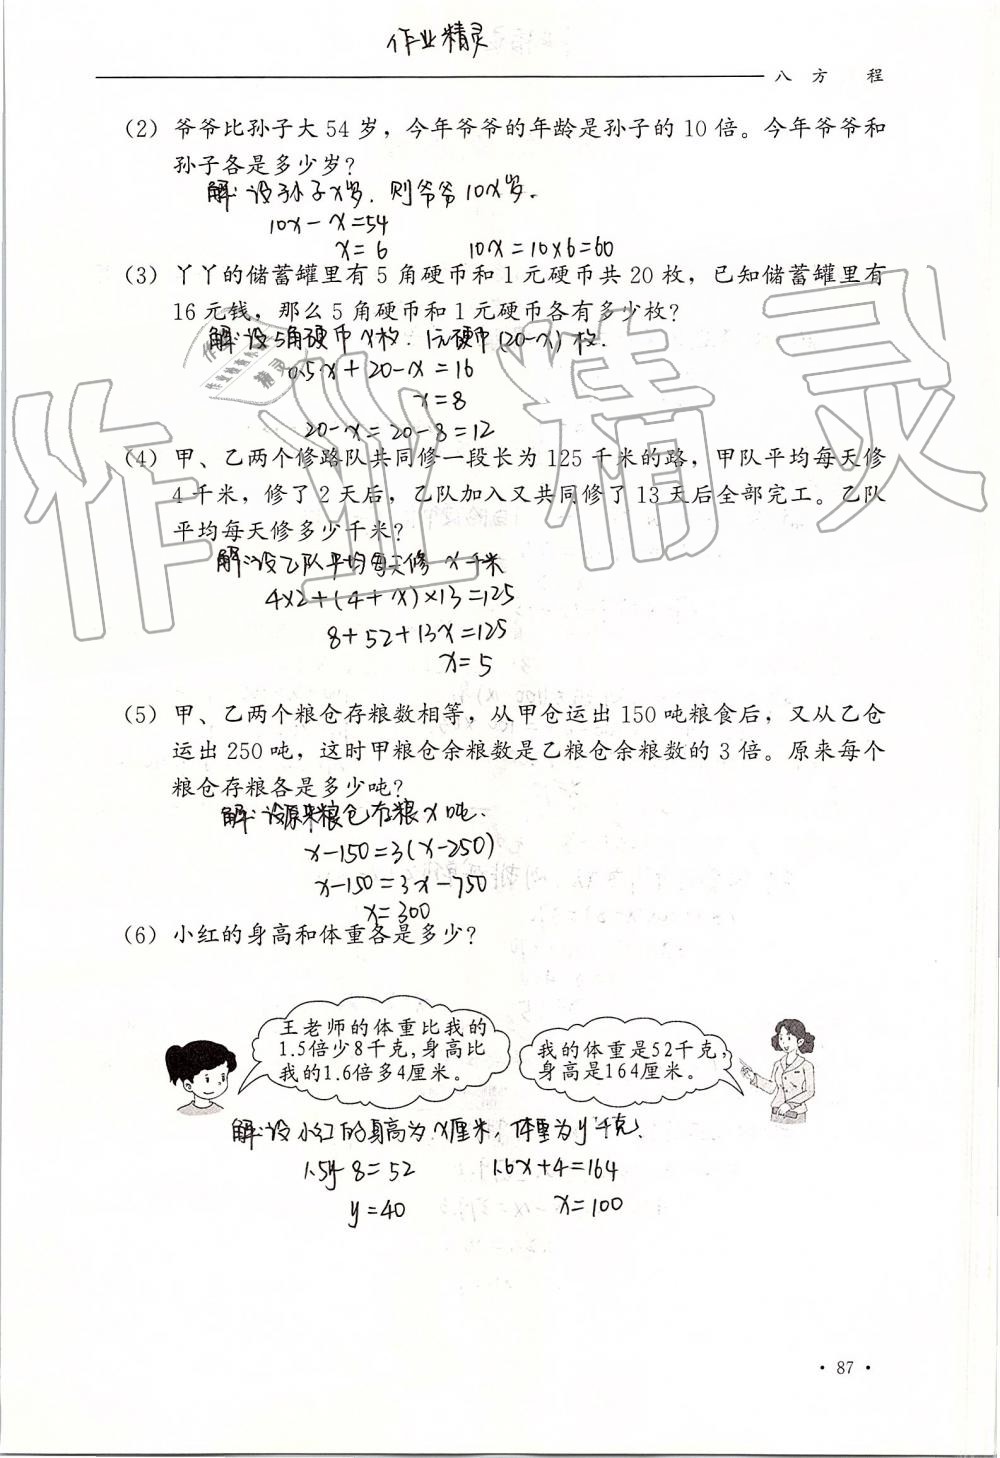 作业精灵
八 方 程
(2) 爷爷比孙子大 54 岁，今年爷爷的年龄是孙子的 10 倍。今年爷爷和
孙子各是多少岁？
解：设孙子x岁，则爷爷10x岁．
10x－x＝54
x＝6 10x＝10×6＝60
(3) 丫丫的储蓄罐里有 5 角硬币和 1 元硬币共 20 枚，已知储蓄罐里有
16 元钱，那么 5 角硬币和 1 元硬币各有多少枚？
解：设5角硬币x枚．1元硬币(20－x)枚．
0.5x＋20－x＝16
x＝8
20－x＝20－8＝12
(4) 甲、乙两个修路队共同修一段长为 125 千米的路，甲队平均每天修
4 千米，修了 2 天后，乙队加入又共同修了 13 天后全部完工。乙队
平均每天修多少千米？
解：设乙队平均每天修x千米
4×2＋(4＋x)×13＝125
8＋52＋13x＝125
x＝5
(5) 甲、乙两个粮仓存粮数相等，从甲仓运出 150 吨粮食后，又从乙仓
运出 250 吨，这时甲粮仓余粮数是乙粮仓余粮数的 3 倍。原来每个
粮仓存粮各是多少吨？
解：设原来粮仓存粮x吨．
x－150＝3(x－250)
x－150＝3x－750
x＝300
(6) 小红的身高和体重各是多少？
王老师的体重比我的
1.5倍少8千克，身高比
我的1.6倍多4厘米。
我的体重是52千克，
身高是164厘米。
解：设小红的身高为x厘米，体重为y千克．
1.5y－8＝52 1.6x＋4＝164
y＝40 x＝100
·87·
作业精灵